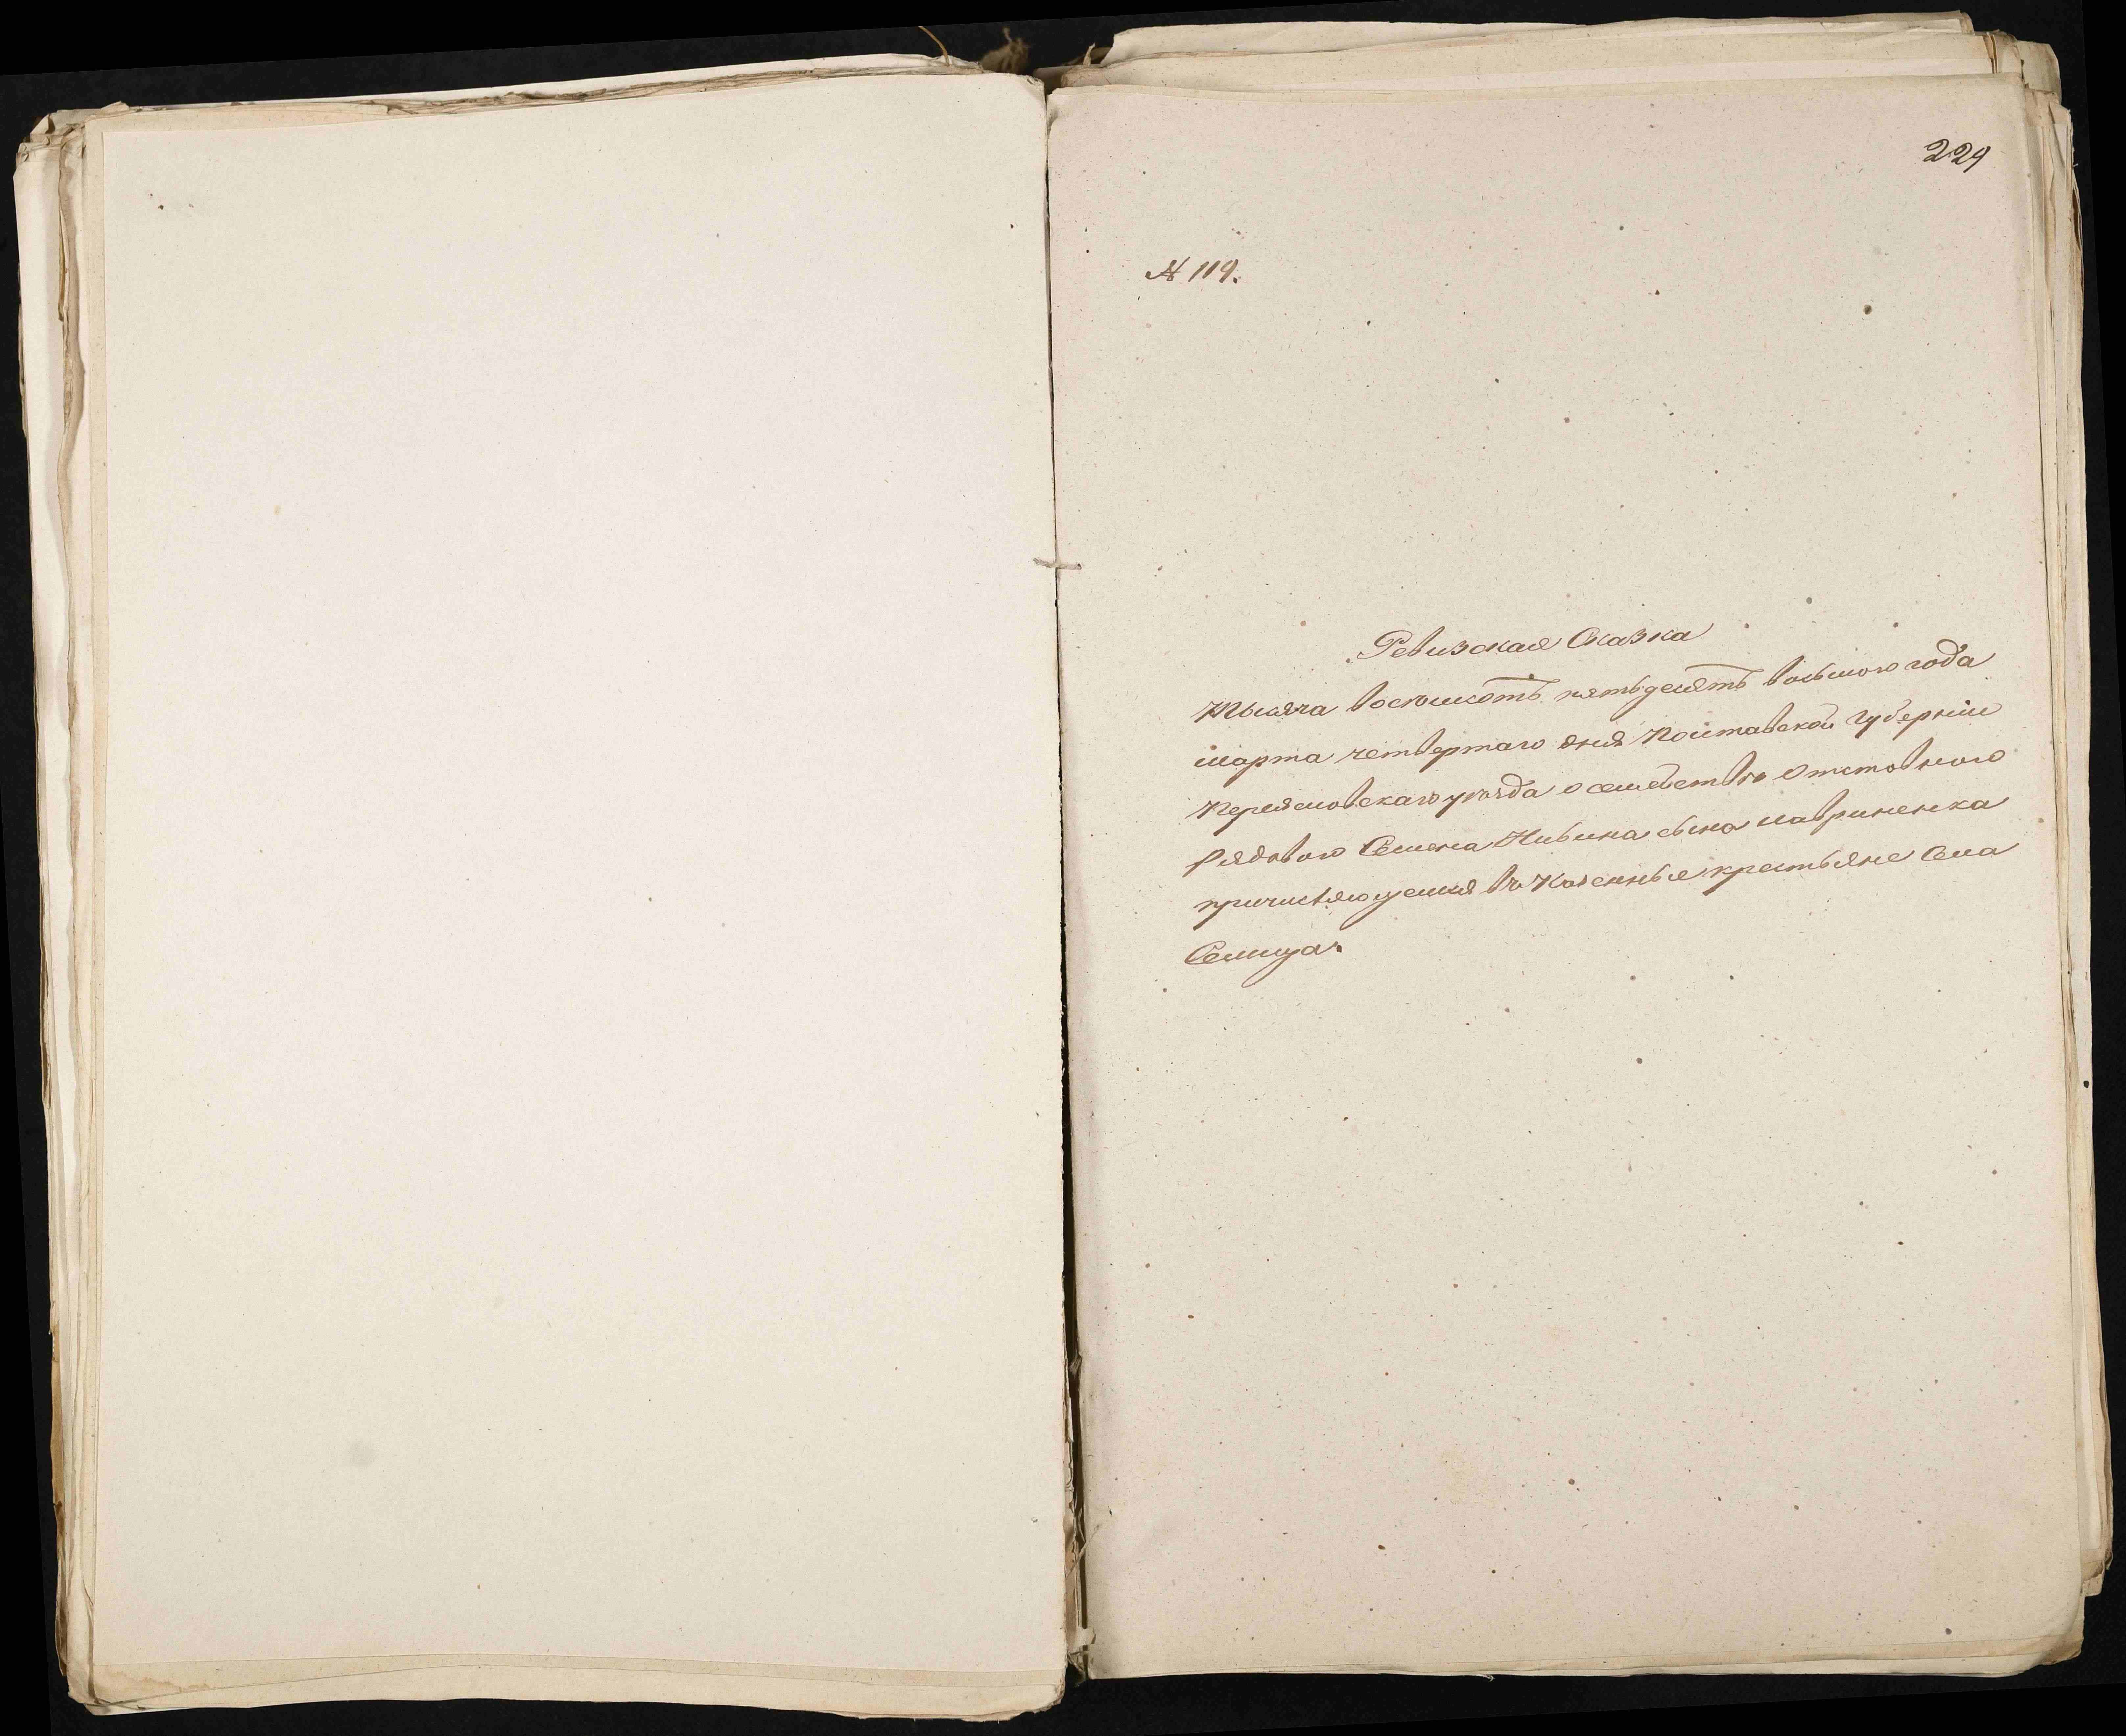 229
№ 119.
Ревизская Сказка
тысяча восемьсотъ пятьдесятъ восьмого года
марта четвертаго дня Полтавской губерніи
Переяславскаго уѣзда о семействѣ Отставного
рядового Семена сына Лавриненка
причисляющемся въ Казенные крестьяне Села